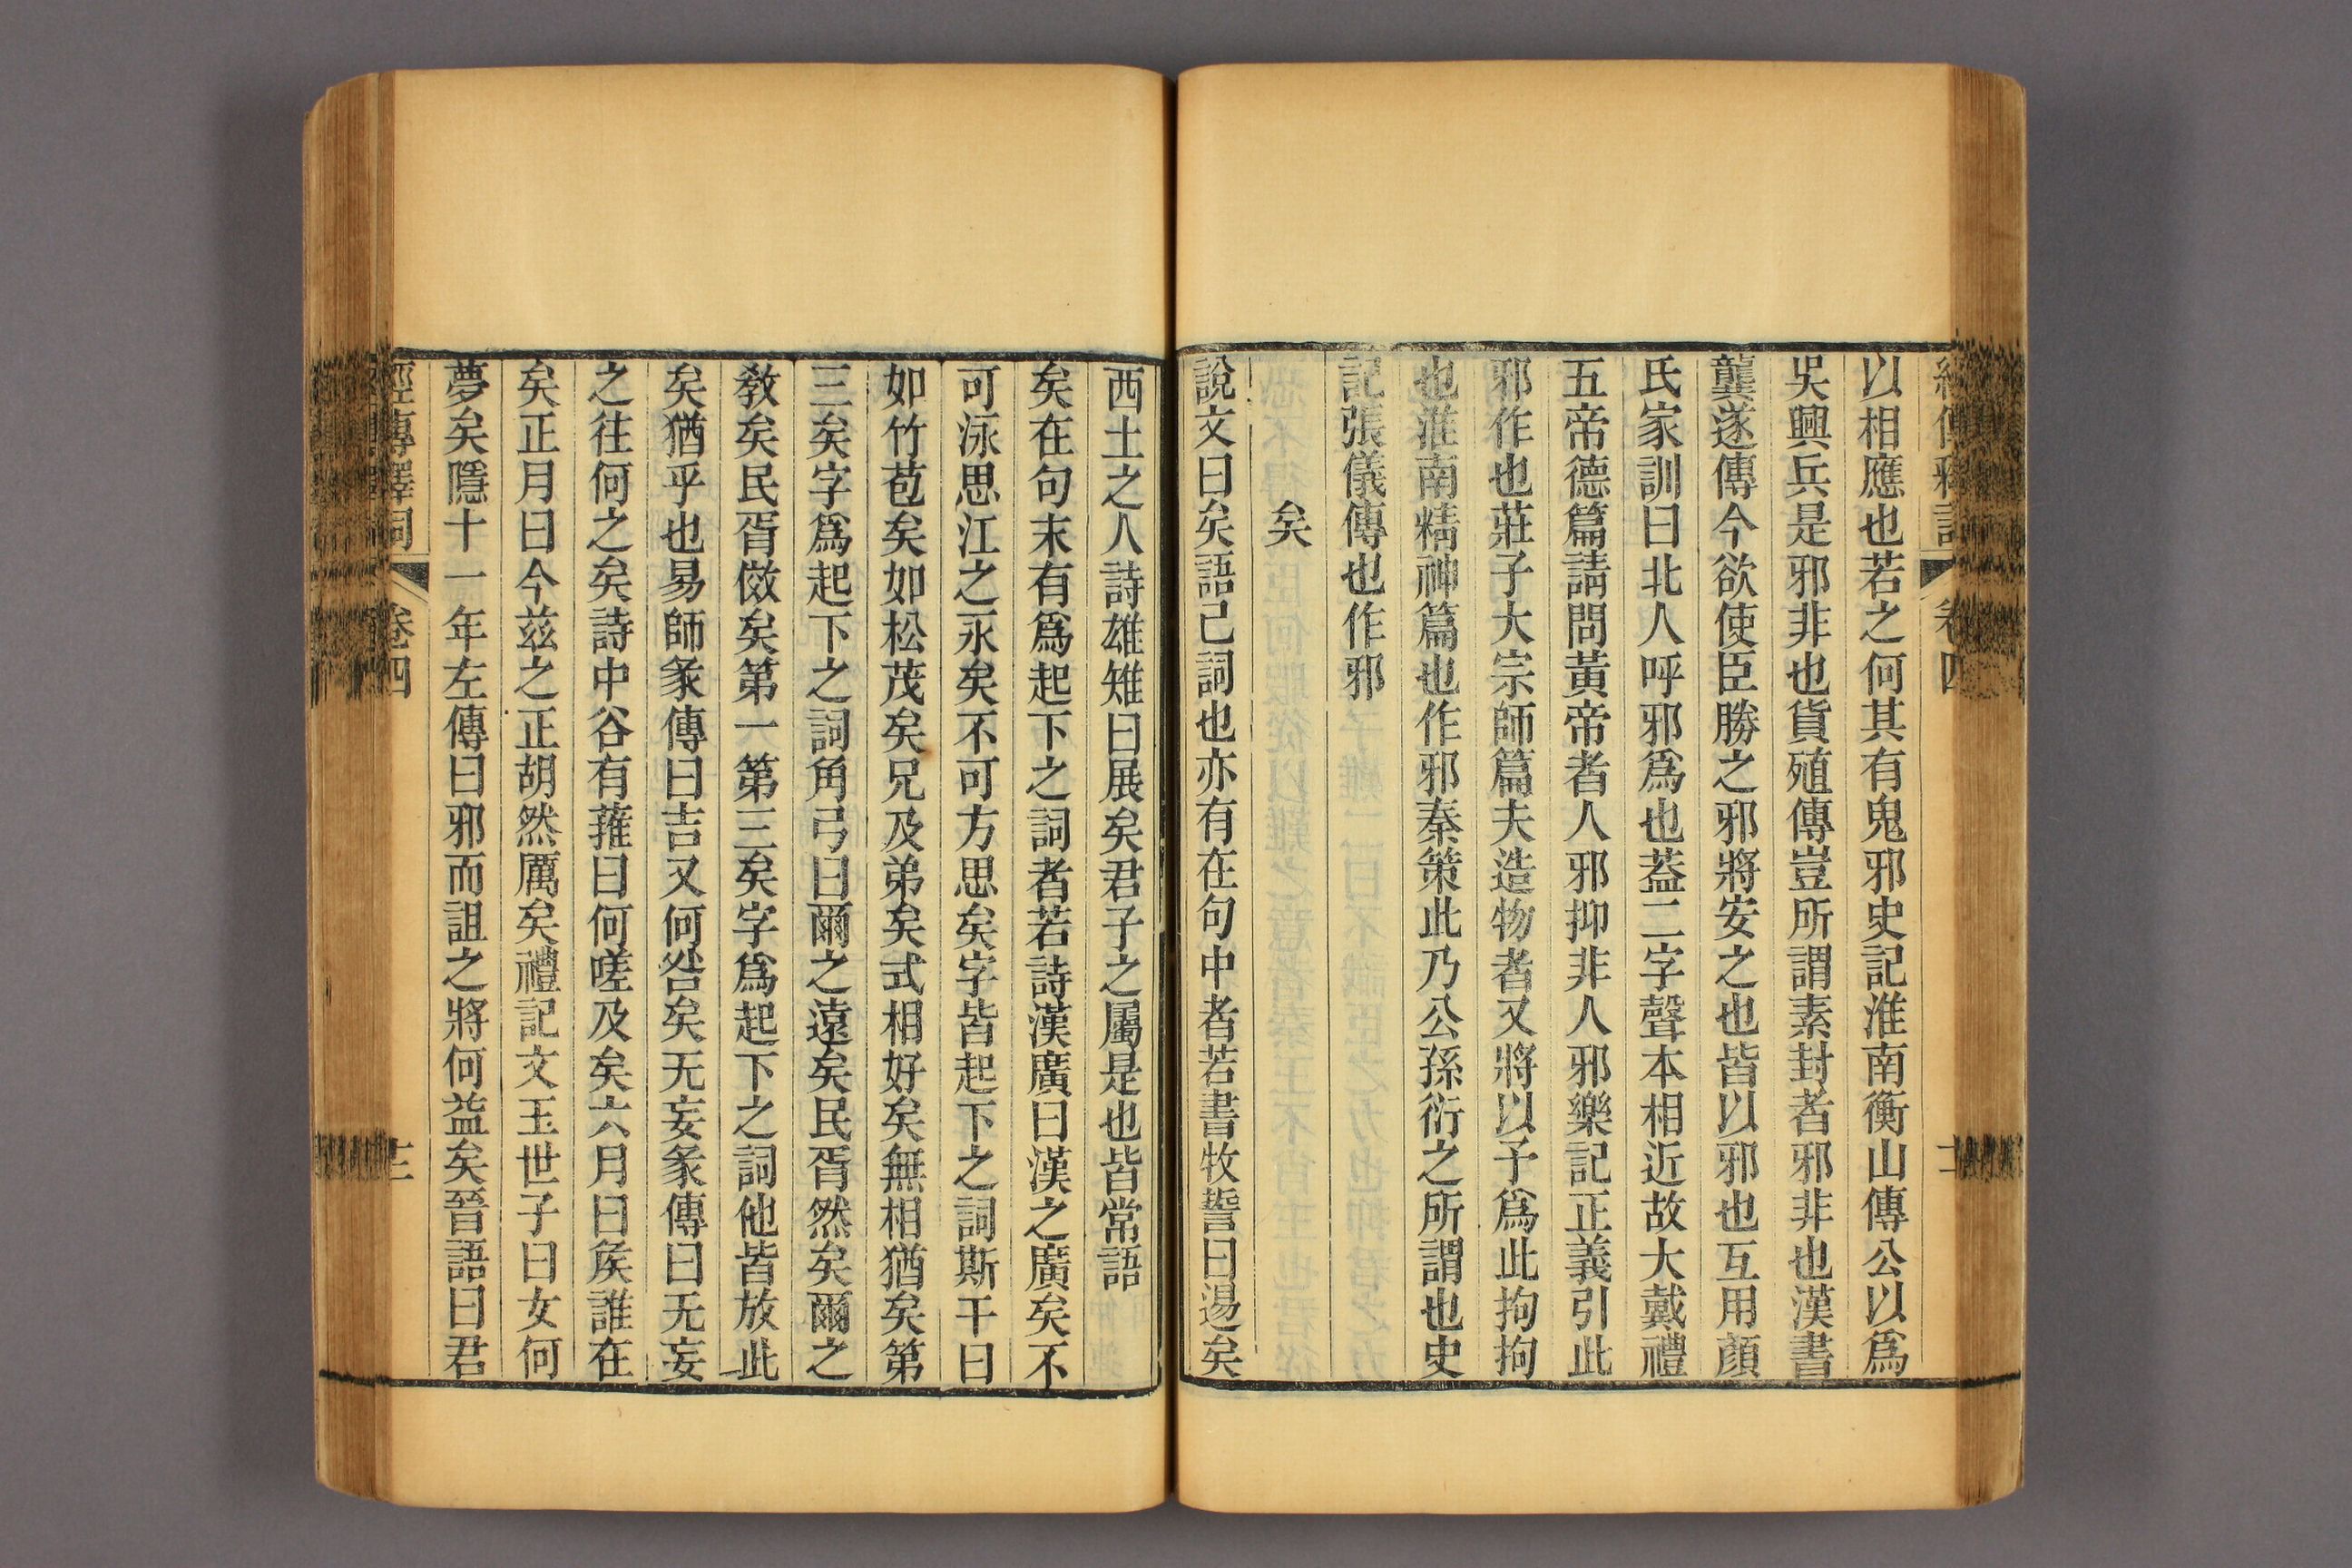 以相應也若之何其有鬼邪史記淮南衡山傳公以爲
吳興兵是邪非也貨殖傳豈所謂素封者邪非也漢書
龔遂傳今欲使臣勝之邪將安之也皆以邪也互用顏
氏家訓曰北人呼邪爲也葢二字聲本相近故大戴禮
五帝德篇請問黃帝者人邪抑非人邪樂記正義引此
邪作也莊子大宗師篇夫造物者又將以予爲此拘拘
也淮南精神篇也作邪秦策此乃公孫衍之所謂也史
記張儀傳也作邪
矣
說文曰矣語己詞也亦有在句中者若書牧誓曰逿矣
西土之人詩雄雉曰展矣君子之屬是也皆常語
矣在句末有爲起下之詞者若詩漢廣曰漢之廣矣不
可泳思江之永矣不可方思矣字皆起下之詞斯干曰
如竹苞矣如松茂矣兄及弟矣式相好矣無相猶矣第
三矣字爲起下之詞角弓曰爾之遠矣民胥然矣爾之
敎矣民胥傚矣第一第三矣字爲起下之詞他皆放此
矣猶乎也易師彖傳曰吉又何咎矣无妄彖傳曰无妄
之往何之矣詩中谷有蓷曰何嗟及矣六月曰矦誰在
矣正月曰今兹之正胡然厲矣禮記文王世子曰女何
夢矣隱十一年左傳曰邪而詛之將何益矣晉語曰君
經傳釋詞 卷四